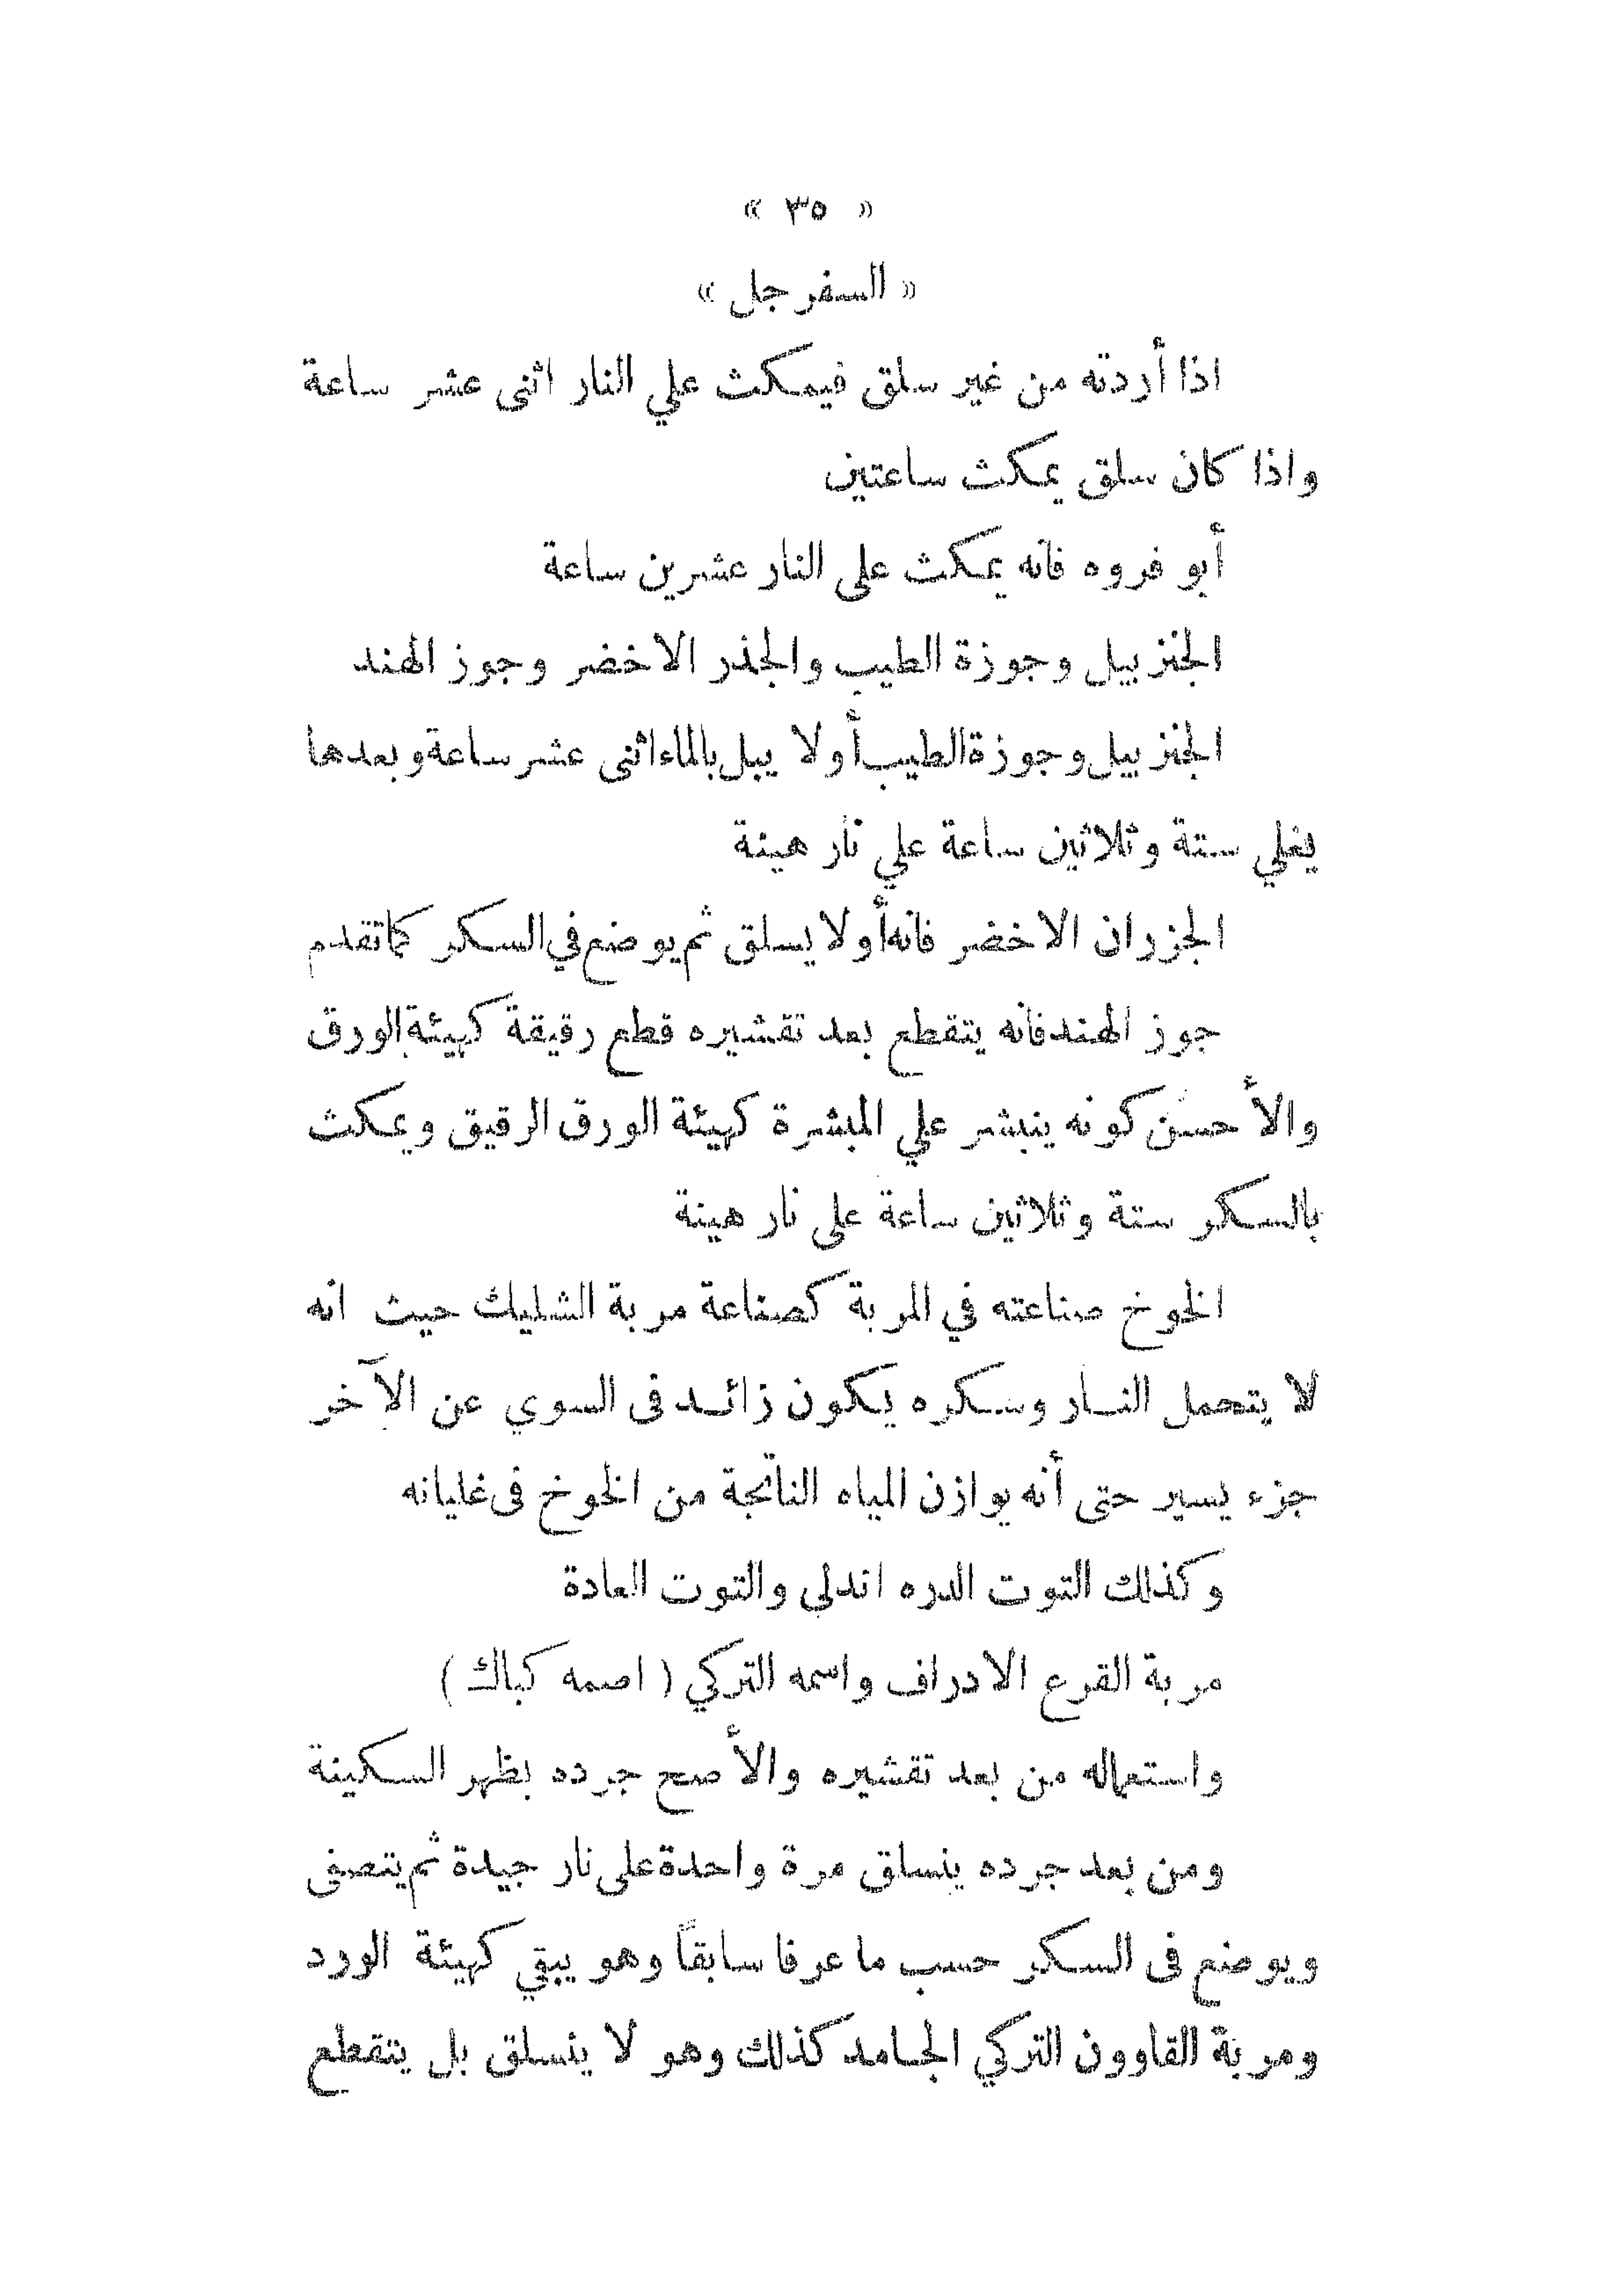 « ٣٥ »
« السفرجل »
اذا أردته من غير سلق فيمكث علي النار اثنى عشر ساعة
واذا كان سلق يمكث ساعتين
أبو فروه فانه يمكث على النار عشرين ساعة
الجنزبيل وجوزة الطيب والجذر الاخضر وجوز الهند
الجنزبيل وجوزة الطيب أولا يبل بالماء اثنى عشر ساعة وبعدها
يغلي ستة وثلاثين ساعة علي نار هينة
الجزران الاخضر فانه أولا يسلق ثم يوضع في السكر كما تقدم
جوز الهند فانه يتقطع بعد تقشيره قطع رقيقة كهيئة الورق
والأحسن كونه ينبشر علي المبشرة كهيئة الورق الرقيق ويمكث
بالسكر ستة وثلاثين ساعة على نار هينة
الخوخ صناعته في المربة كصناعة مربة الشليك حيث انه
لا يتحمل النار وسكره يكون زائد فى السوي عن الآخر
جزء يسير حتى أنه يوازن المياه الناتجة من الخوخ فى غليانه
وكذلك التوت الدره اندلى والتوت العادة
مربة القرع الادراف واسمه التركي ( اصمه كباك )
واستعماله من بعد تقشيره والأصح جرده بظهر السكينة
ومن بعد جرده ينسلق مرة واحدة على نار جيدة ثم يتصفى
ويوضع فى السكر حسب ما عرفا سابقاً وهو يبقي كهيئة الورد
ومربة القاوون التركي الجامد كذلك وهو لا ينسلق بل يتقطع